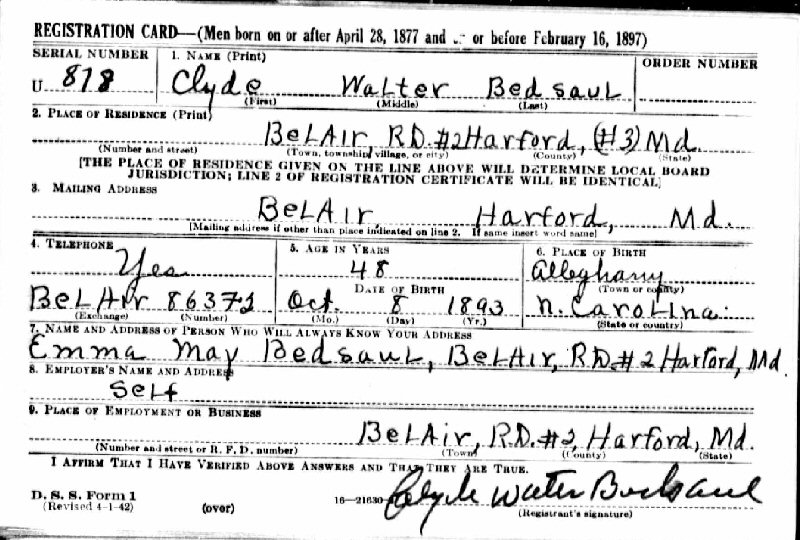 REGISTRATION CARD—(Men born on or after April 28, 1877 and on or before February 16, 1897)
SERIAL NUMBER 1. NAME (Print) ORDER NUMBER
U 878 Clyde Walter Bedsaul
(First) (Middle) (Last)
2. PLACE OF RESIDENCE (Print)
BelAir, R.D. #2 Harford, (#3) Md.
(Number and street) (Town, township, village, or city) (County) (State)
[THE PLACE OF RESIDENCE GIVEN ON THE LINE ABOVE WILL DETERMINE LOCAL BOARD
JURISDICTION; LINE 2 OF REGISTRATION CERTIFICATE WILL BE IDENTICAL]
3. MAILING ADDRESS
BelAir, Harford, Md.
[Mailing address if other than place indicated on line 2. If same insert word same]
4. TELEPHONE 5. AGE IN YEARS 6. PLACE OF BIRTH
Yes 48 Alleghany
DATE OF BIRTH (Town or county)
BelAir Oct. 8 1893 N. Carolina
(Exchange) (Number) (Mo.) (Day) (Yr.) (State or country)
7. NAME AND ADDRESS OF PERSON WHO WILL ALWAYS KNOW YOUR ADDRESS
Emma May Bedsaul, BelAir, R.D. #2 Harford, Md.
8. EMPLOYER'S NAME AND ADDRESS
Self
9. PLACE OF EMPLOYMENT OR BUSINESS
BelAir, R.D. #2, Harford, Md.
(Number and street or R. F. D. number) (Town) (County) (State)
I AFFIRM THAT I HAVE VERIFIED ABOVE ANSWERS AND THAT THEY ARE TRUE.
D. S. S. Form 1
(Revised 4-1-42) (over) 16—21630 Clyde Walter Bedsaul
(Registrant's signature)